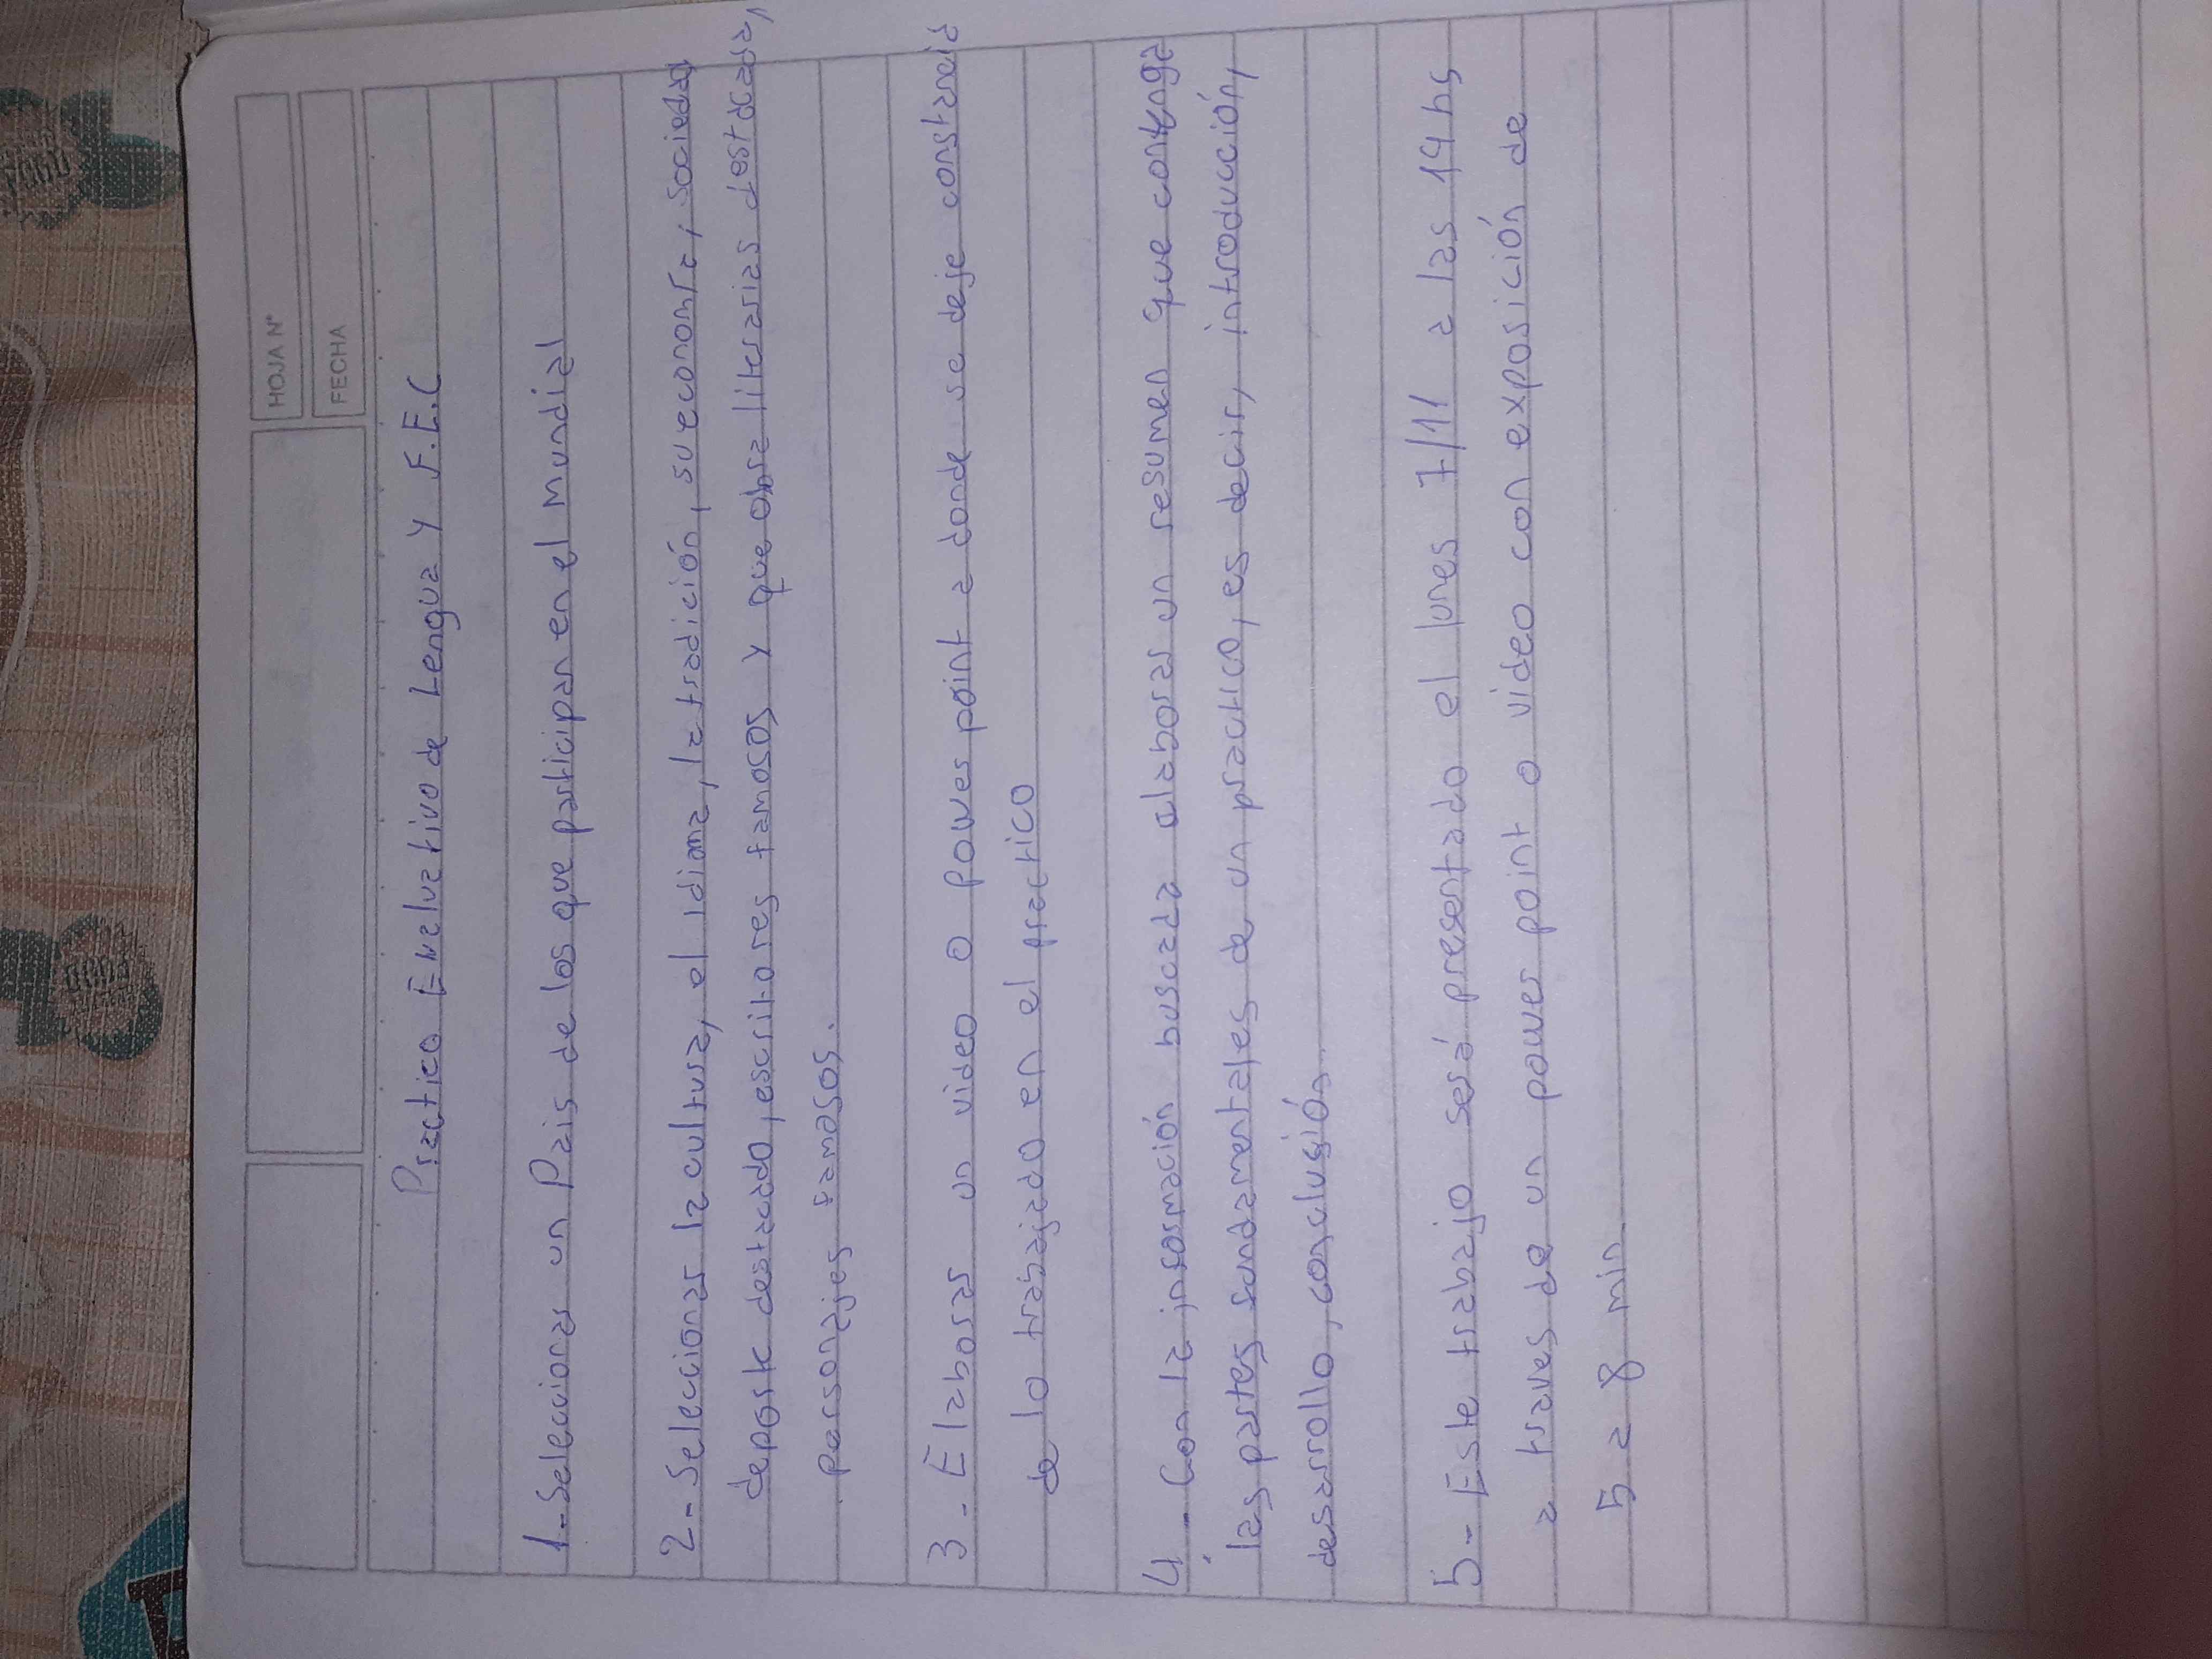 HOJA N°
FECHA
Practico Evaluativo de Lengua y F.E.C
1-Seleccionar un Pais de los que participan en el Mundial
2-Seleccionar la cultura, el idioma, la tradición, su economía, sociedad
deporte destacado, escritores famosos y que obras literarias destacadas,
personajes famosos.
3-Elaborar un video o Power point a donde se deje constancia
de lo trabajado en el práctico
4-Con la información buscada elaborar un resumen que contenga
las partes fundamentales de un practico, es decir, introducción,
desarrollo, conclusión.
5-Este trabajo será presentado el lunes 7/11 a las 19 hs
a traves de un power point o video con exposición de
5 a 8 min